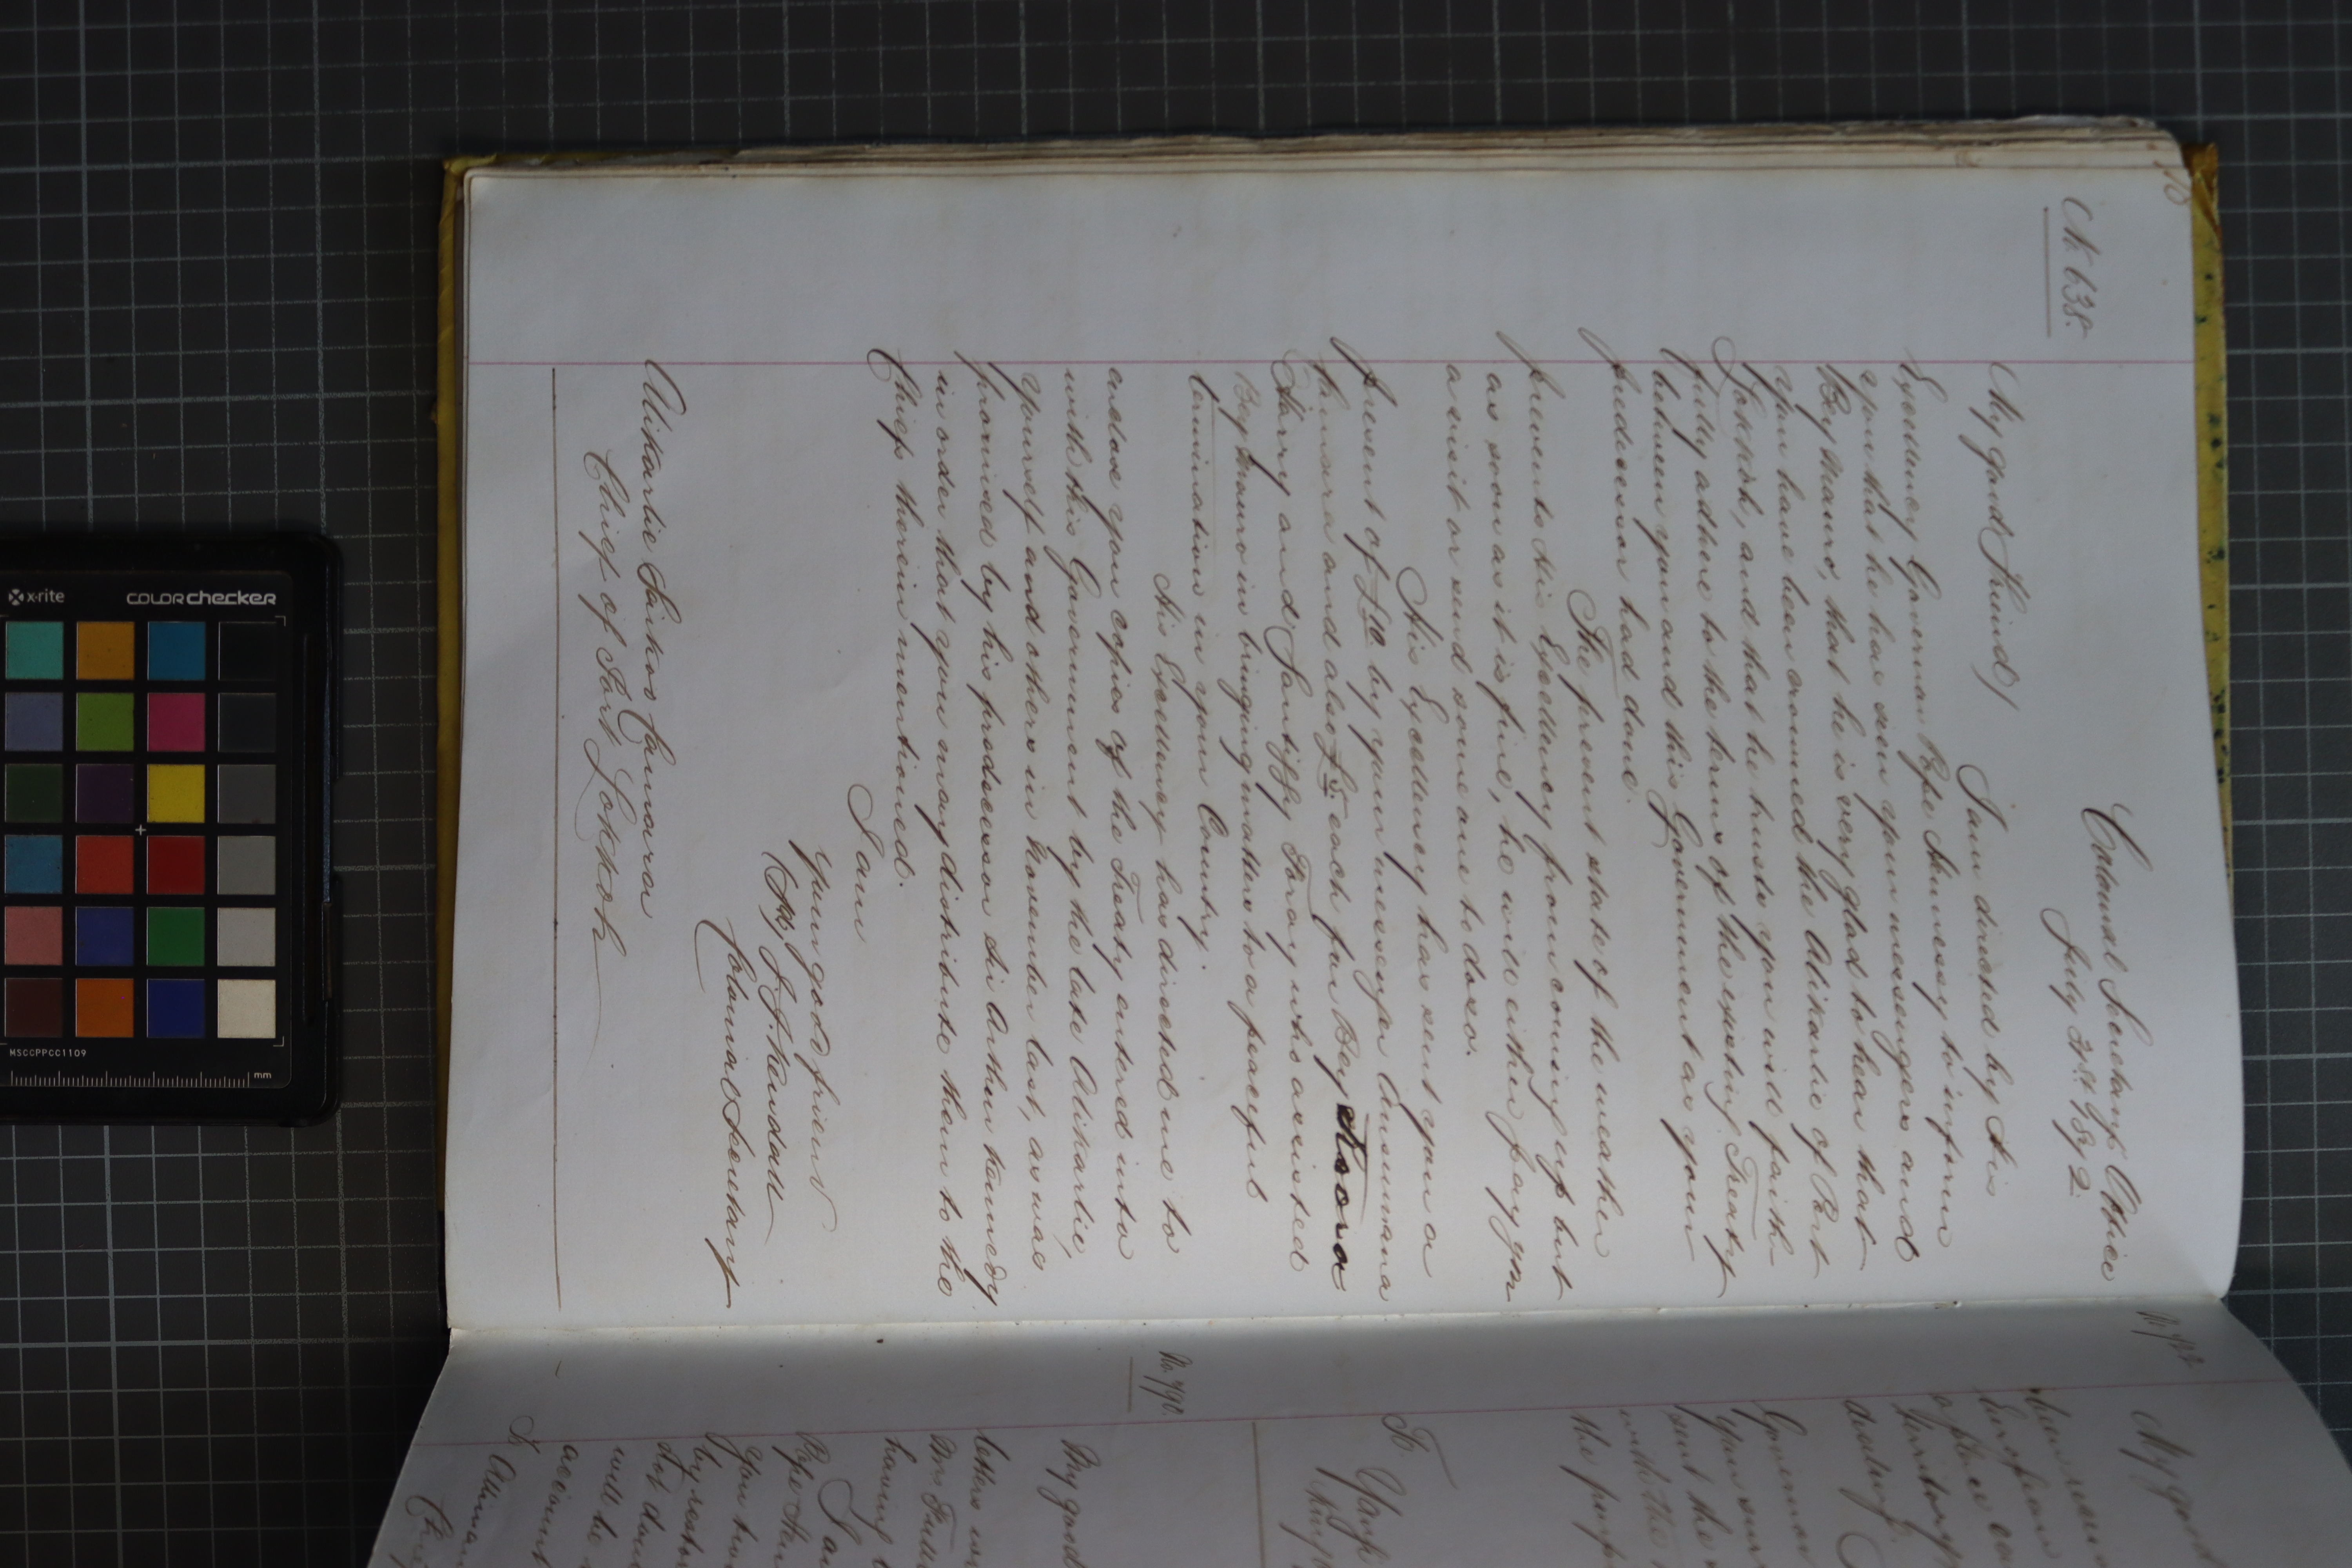 No 638.
Colonial Secretary's Office
July 31st 1872.
My good Friend/
I am directed by His
Excellency Governor Pope Hennessy to inform
you that he has seen your messengers and
Bey Mauro, that he is very glad to hear that
you have been crowned the Alikarlie of Port
Lokkoh, and that he trusts you will faith-
fully adhere to the terms of the existing Treaty
between you and this Government as your
predecessor had done.
The present state of the weather
prevents His Excellency from coming up but
as soon as it is fine, he will either pay you
a visit or send some one to do so.
His Excellency has sent you a
present of £10 by your messenger Ansumana
Kamara and also £5 each for Bey
Harry and Santiggy Foray who assisted
Bey Mauro in bringing matters to a peaceful
termination in your Country.
His Excellency has directed me to
enclose you copies of the Treaty entered into
with this Government by the late Alikarlie,
yourself and others in November last, as was
promised by his predecessor Sir Arthur Kennedy
in order that you may distribute them to the
Chiefs therein mentioned.
I am
Your good friend
J. J. Kendall
Colonial Secretary
Alikarlie Saikoo Camara
Chief of Port Lokkoh
My good
European
Territory
dealing
Governor
your
sent the
with the
the
To
No. 790.
My good
letters
Mr.
having
I am
Pope Hen
you
by restor
will be
account
To
Chief
xrite
colorchecker
MSCCPPCC1109
mm